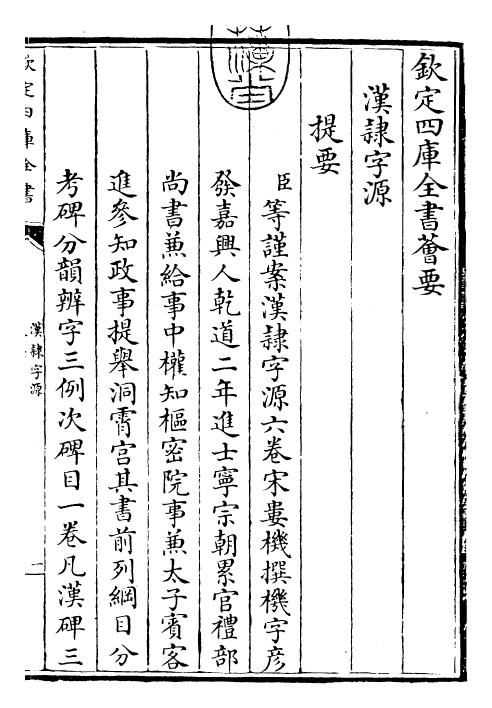 欽定四庫全書薈要
漢隸字源
提要
臣等謹案漢隸字源六卷宋婁機撰機字彦
發嘉興人乾道二年進士寧宗朝累官禮部
尚書兼給事中權知樞密院事兼太子賓客
進參知政事提舉洞霄宫其書前列綱目分
考碑分韻辨字三例次碑目一卷凡漢碑三
欽定四庫全書
漢隸字源